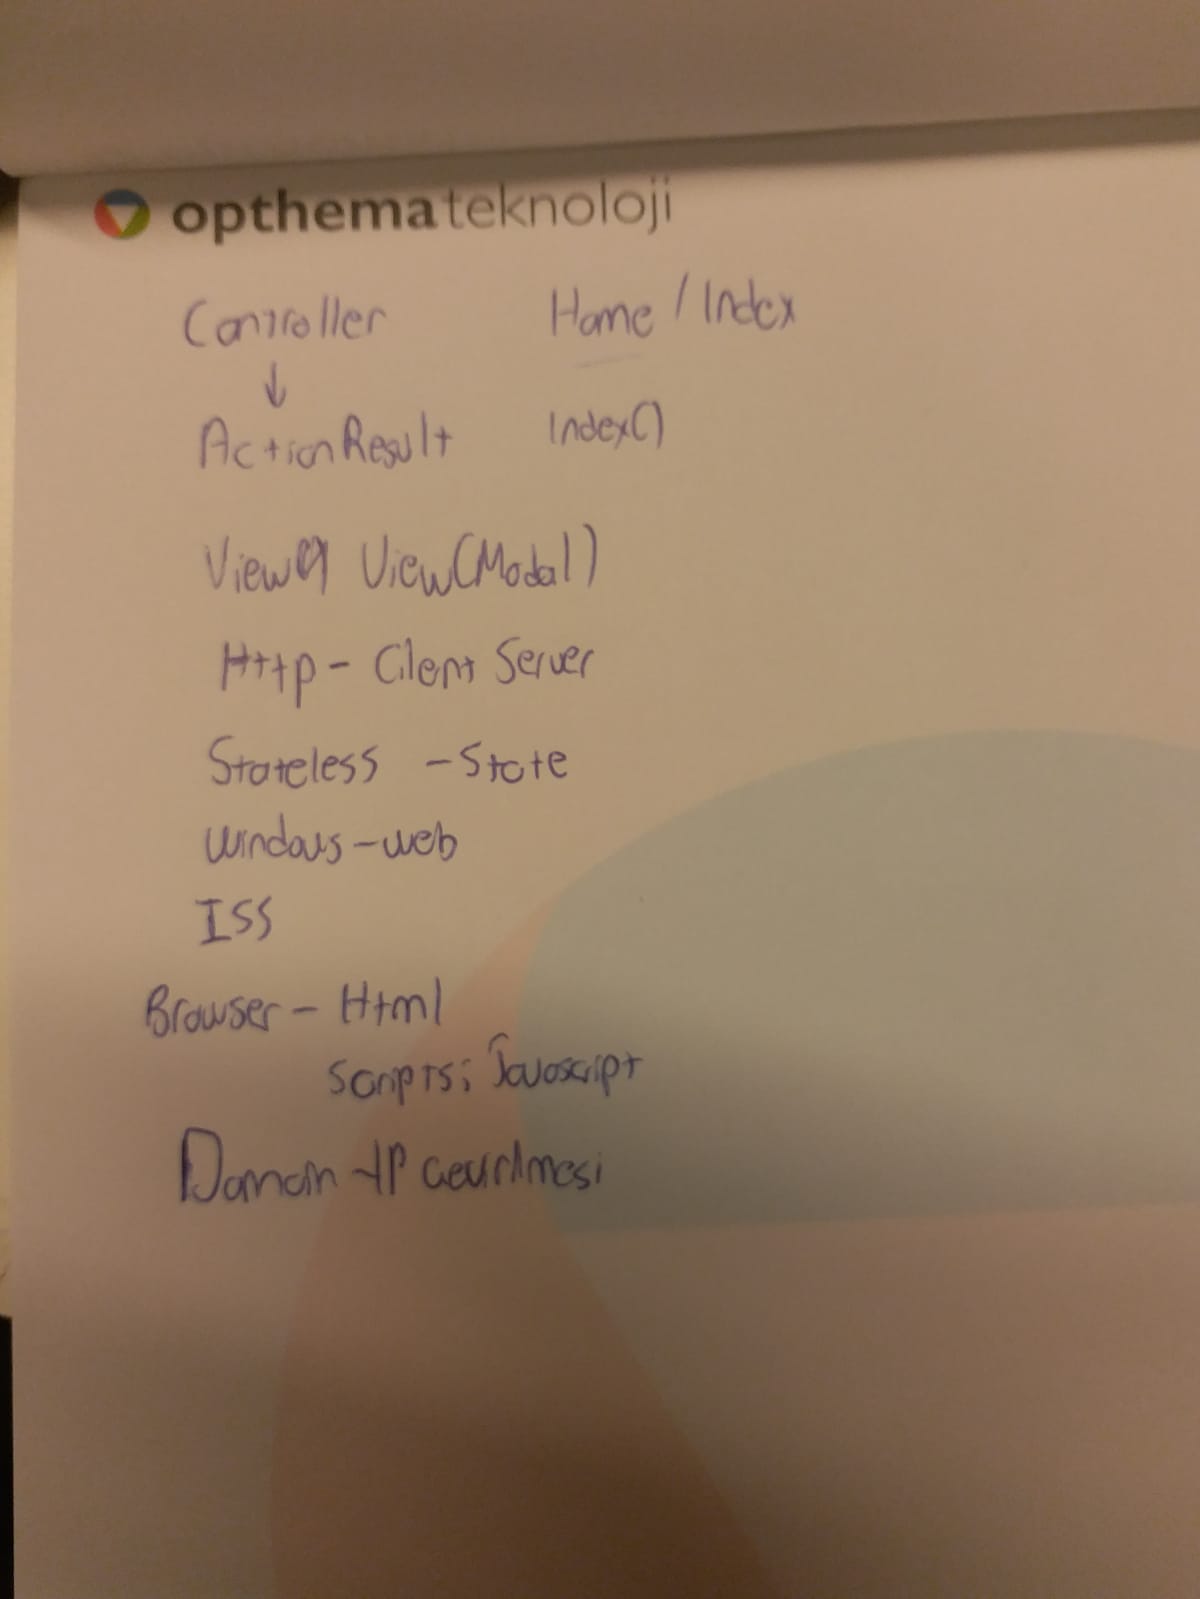 opthema teknoloji
Controller Home / Index
↓
ActionResult Index()
View() View(Modal)
Http - Cilent Server
Stateless - State
Windows - web
ISS
Browser - Html
Scripts; Javascript
Domain - IP Çevirilmesi